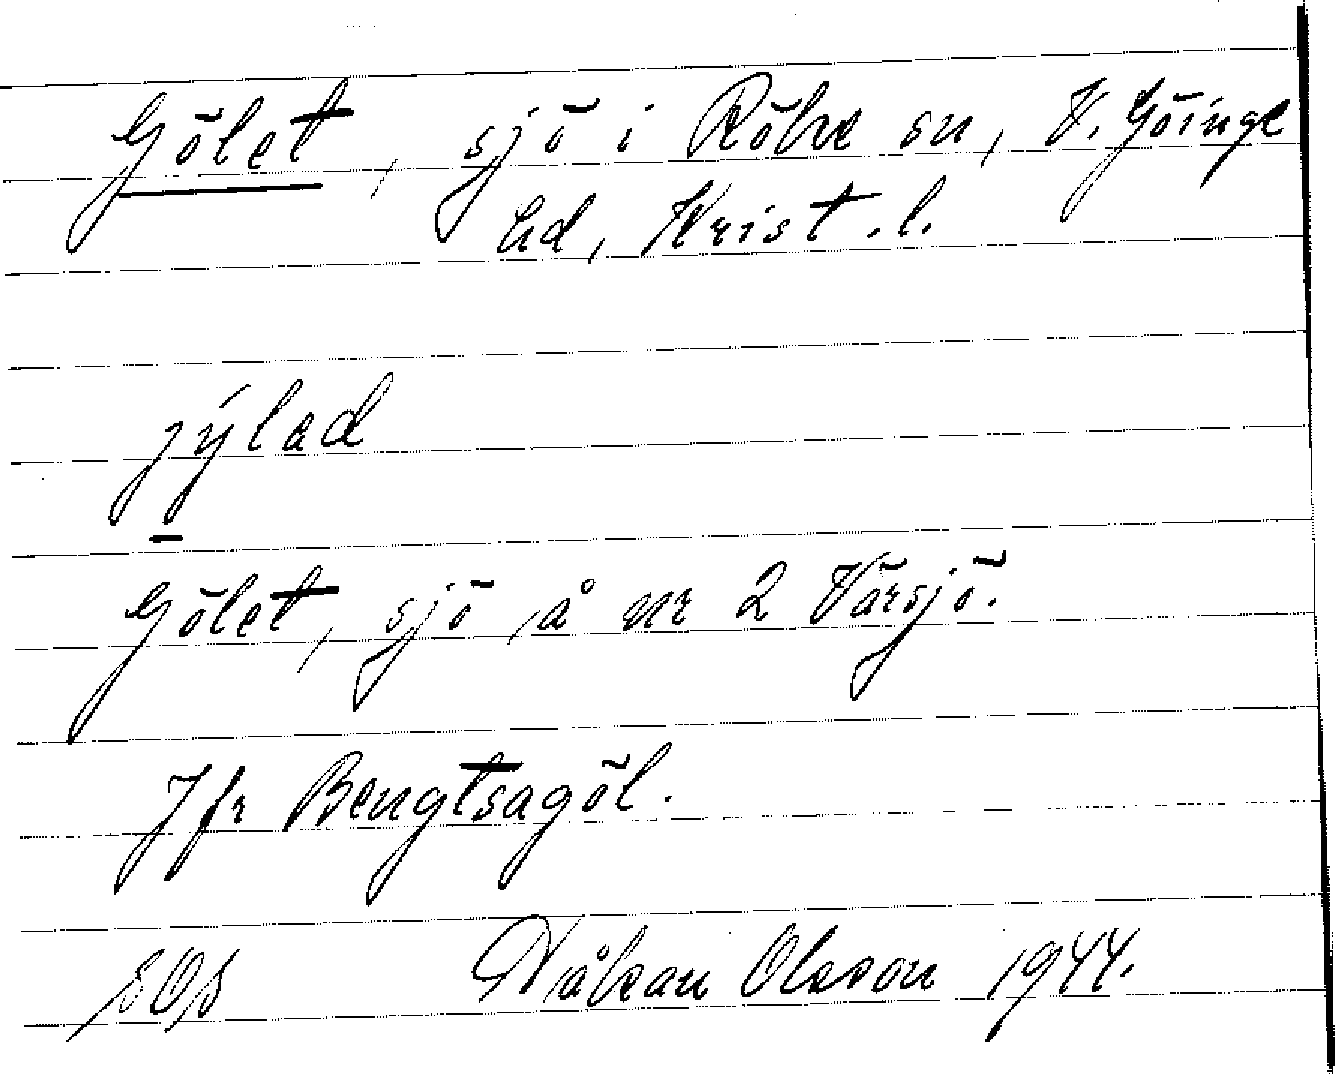 Gölet, sjö i Röke sn, V. Göinge
hd, Krist. l.
jýlad
Gölet, sjö å nr 2 Värsjö.
Jfr Bengtsagöl.
SOS Håkan Olsson 1944.